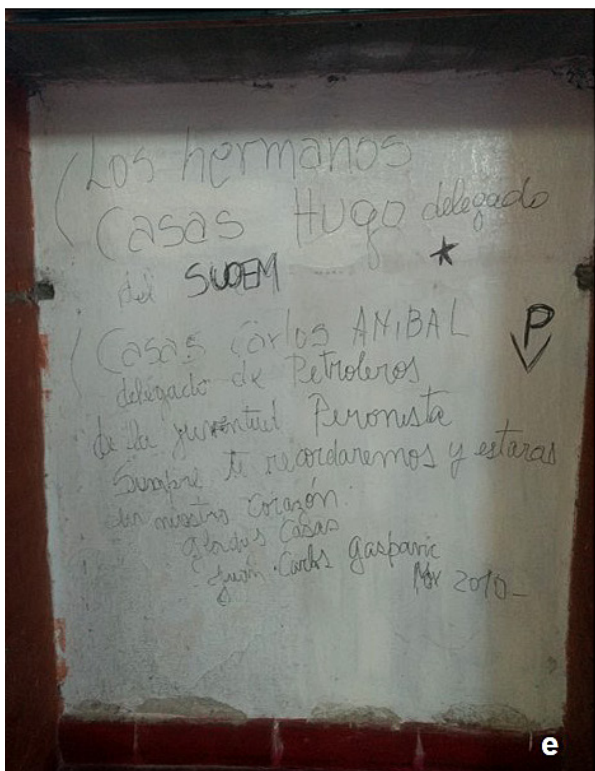 (Los hermanos
Casas Hugo delegado
del SUOEM ★
(Casas Carlos ANiBAL
delegado de Petroleros
P
de la juventud Peronista
Siempre te recordaremos y estaras
en nuestro corazón.
Gladys Casas
Juan Carlos Gasparic
Nov 2010_
e